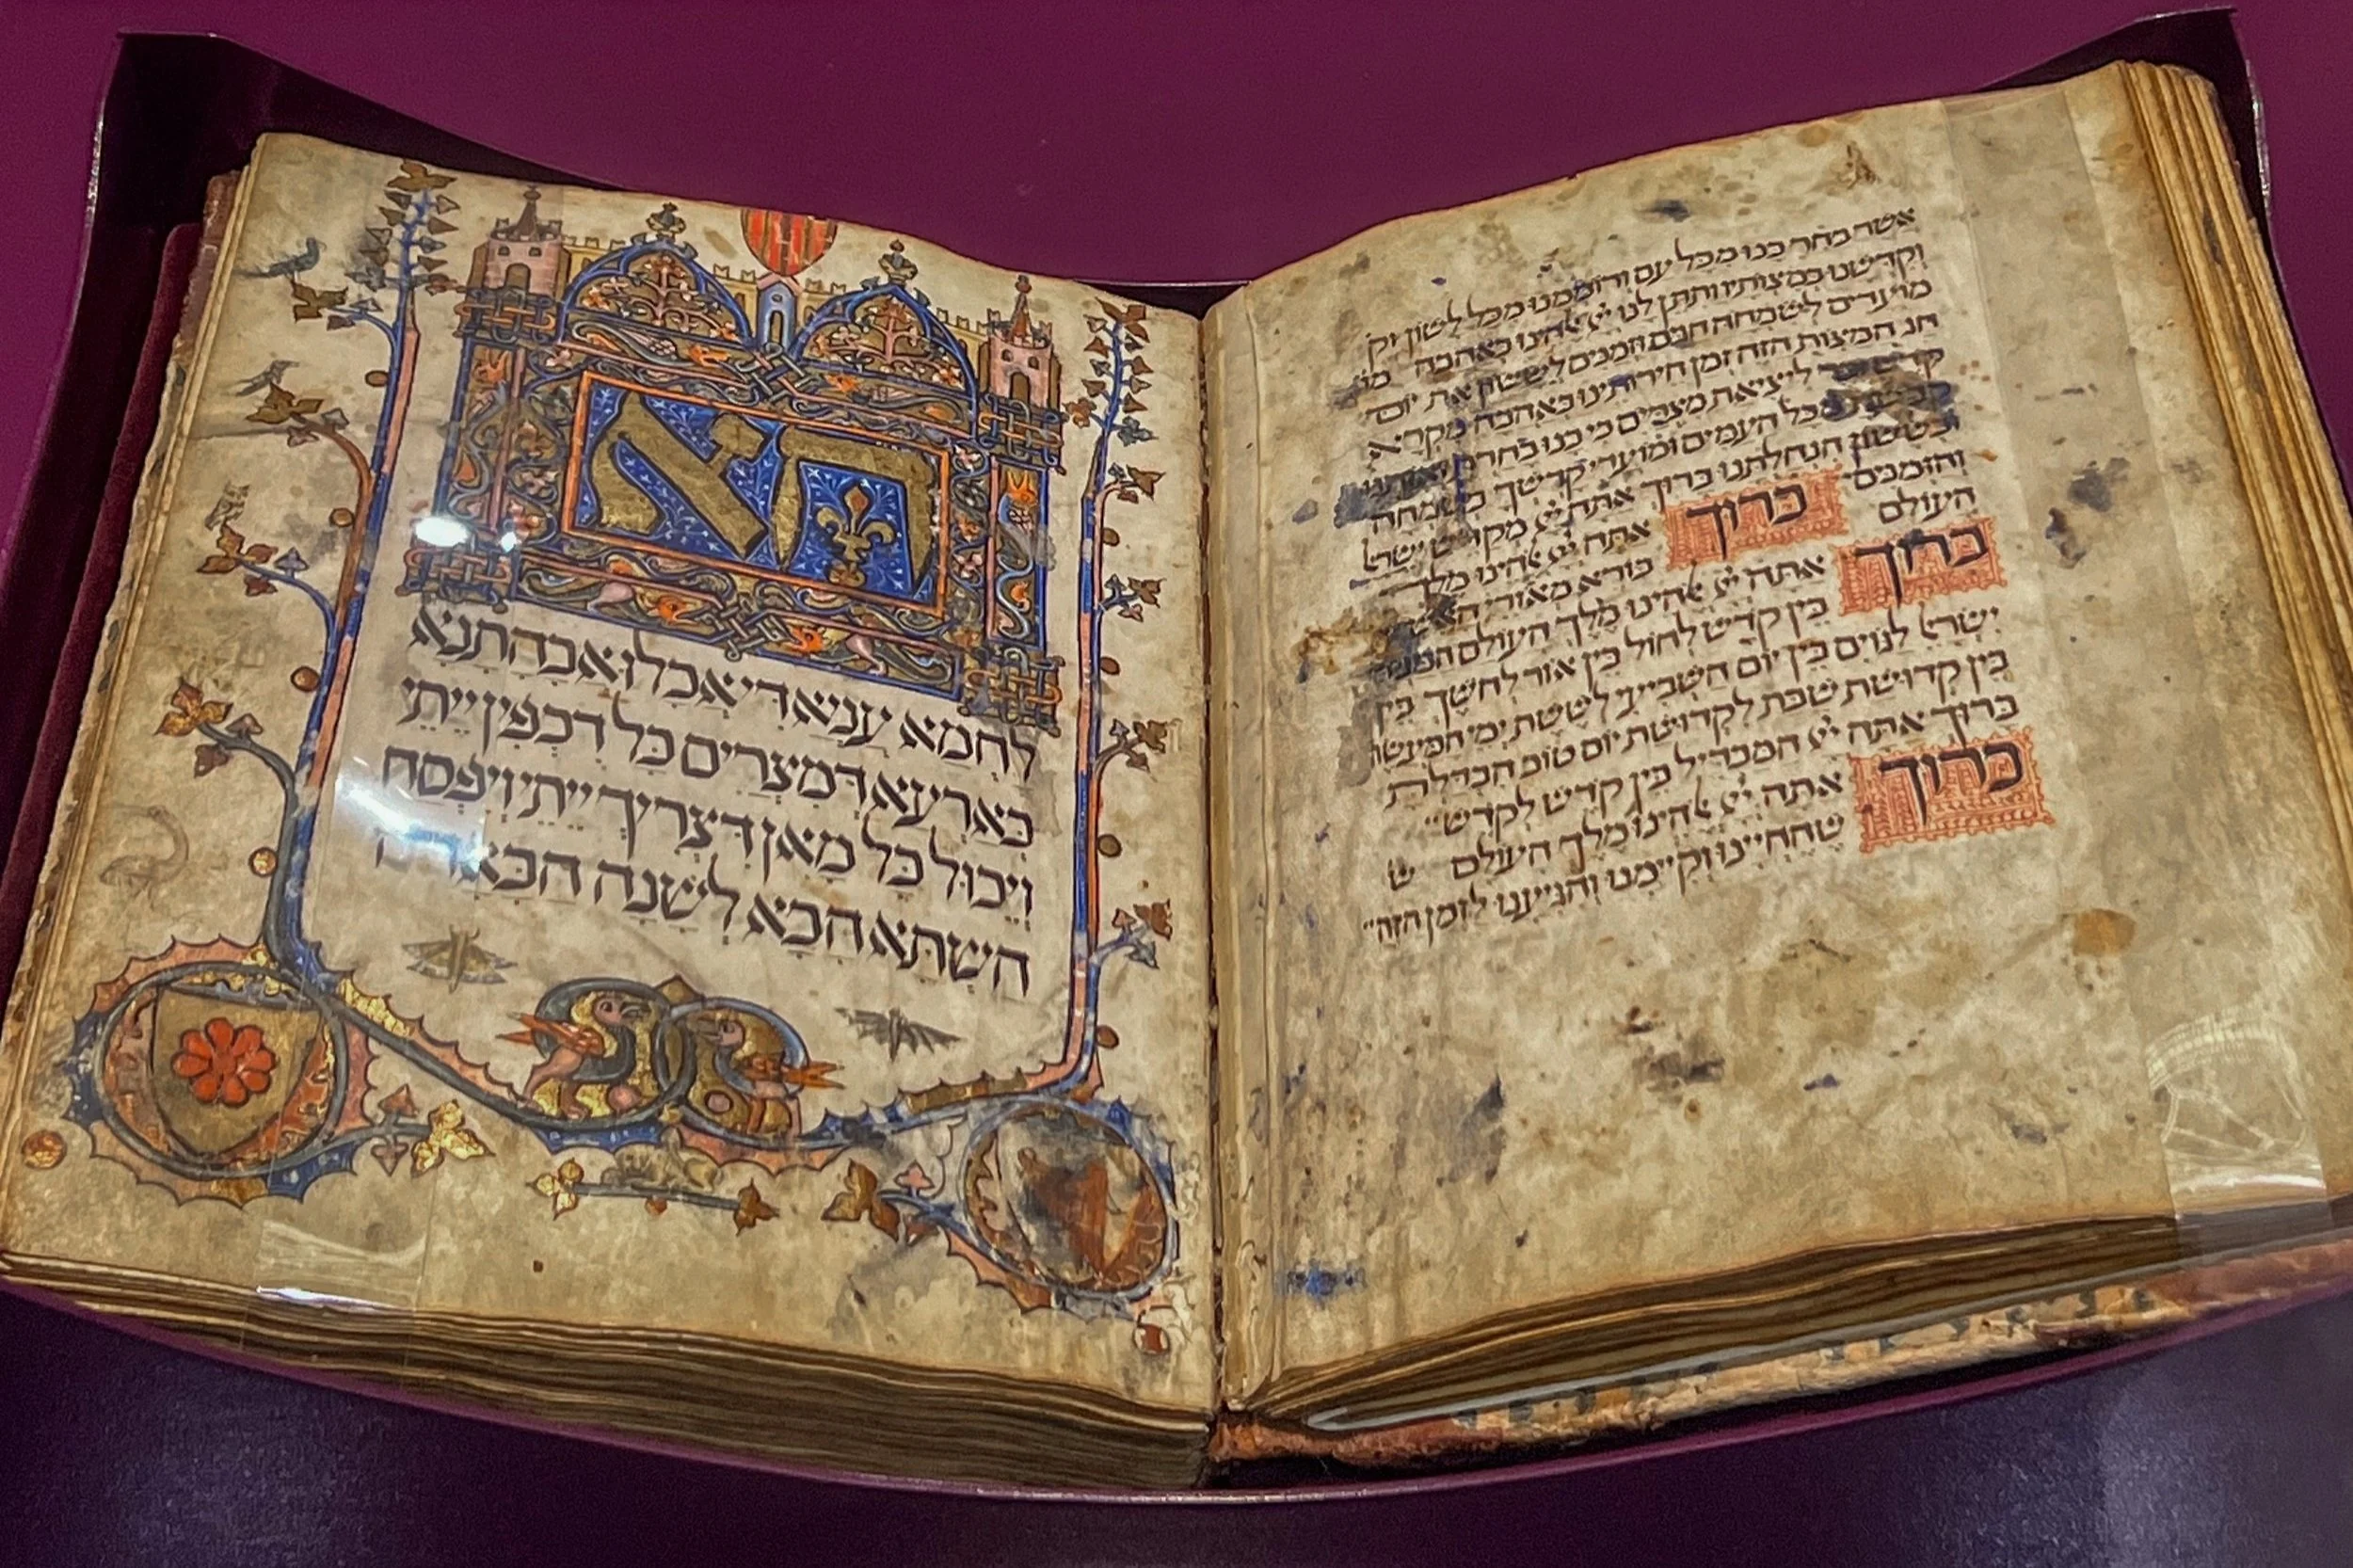 אשר בחר בנו מכל עם ורוממנו מכל לשון וק
וקדשנו במצותיו ותתן לנו יי אלהינו באהבה מו
מועדים לשמחה חגים וזמנים לששון את יום
חג המצות הזה זמן חירותינו באהבה מקרא
קדש זכר ליציאת מצרים כי בנו בחרת ואותנו
מכל העמים ומועדי קדשך בשמחה
ובששון הנחלתנו ברוך אתה יי מקדש ישראל
והזמנים ברוך אתה יי אלהינו מלך
העולם בורא מאורי האש
ברוך אתה יי אלהינו מלך העולם המבדיל
בין קדש לחול בין אור לחשך בין
ישראל לגוים בין יום השביעי לששת ימי המעשה
בין קדושת שבת לקדושת יום טוב הבדלת
ברוך אתה יי המבדיל בין קדש לקדש
ברוך אתה יי אלהינו מלך העולם ש
שהחיינו וקיימנו והגיענו לזמן הזה
הא
לחמא עניא די אכלו אבהתנא
בארעא דמצרים כל דכפין ייתי
ויכול כל מאן דצריך ייתי ויפסח
השתא הכא לשנה